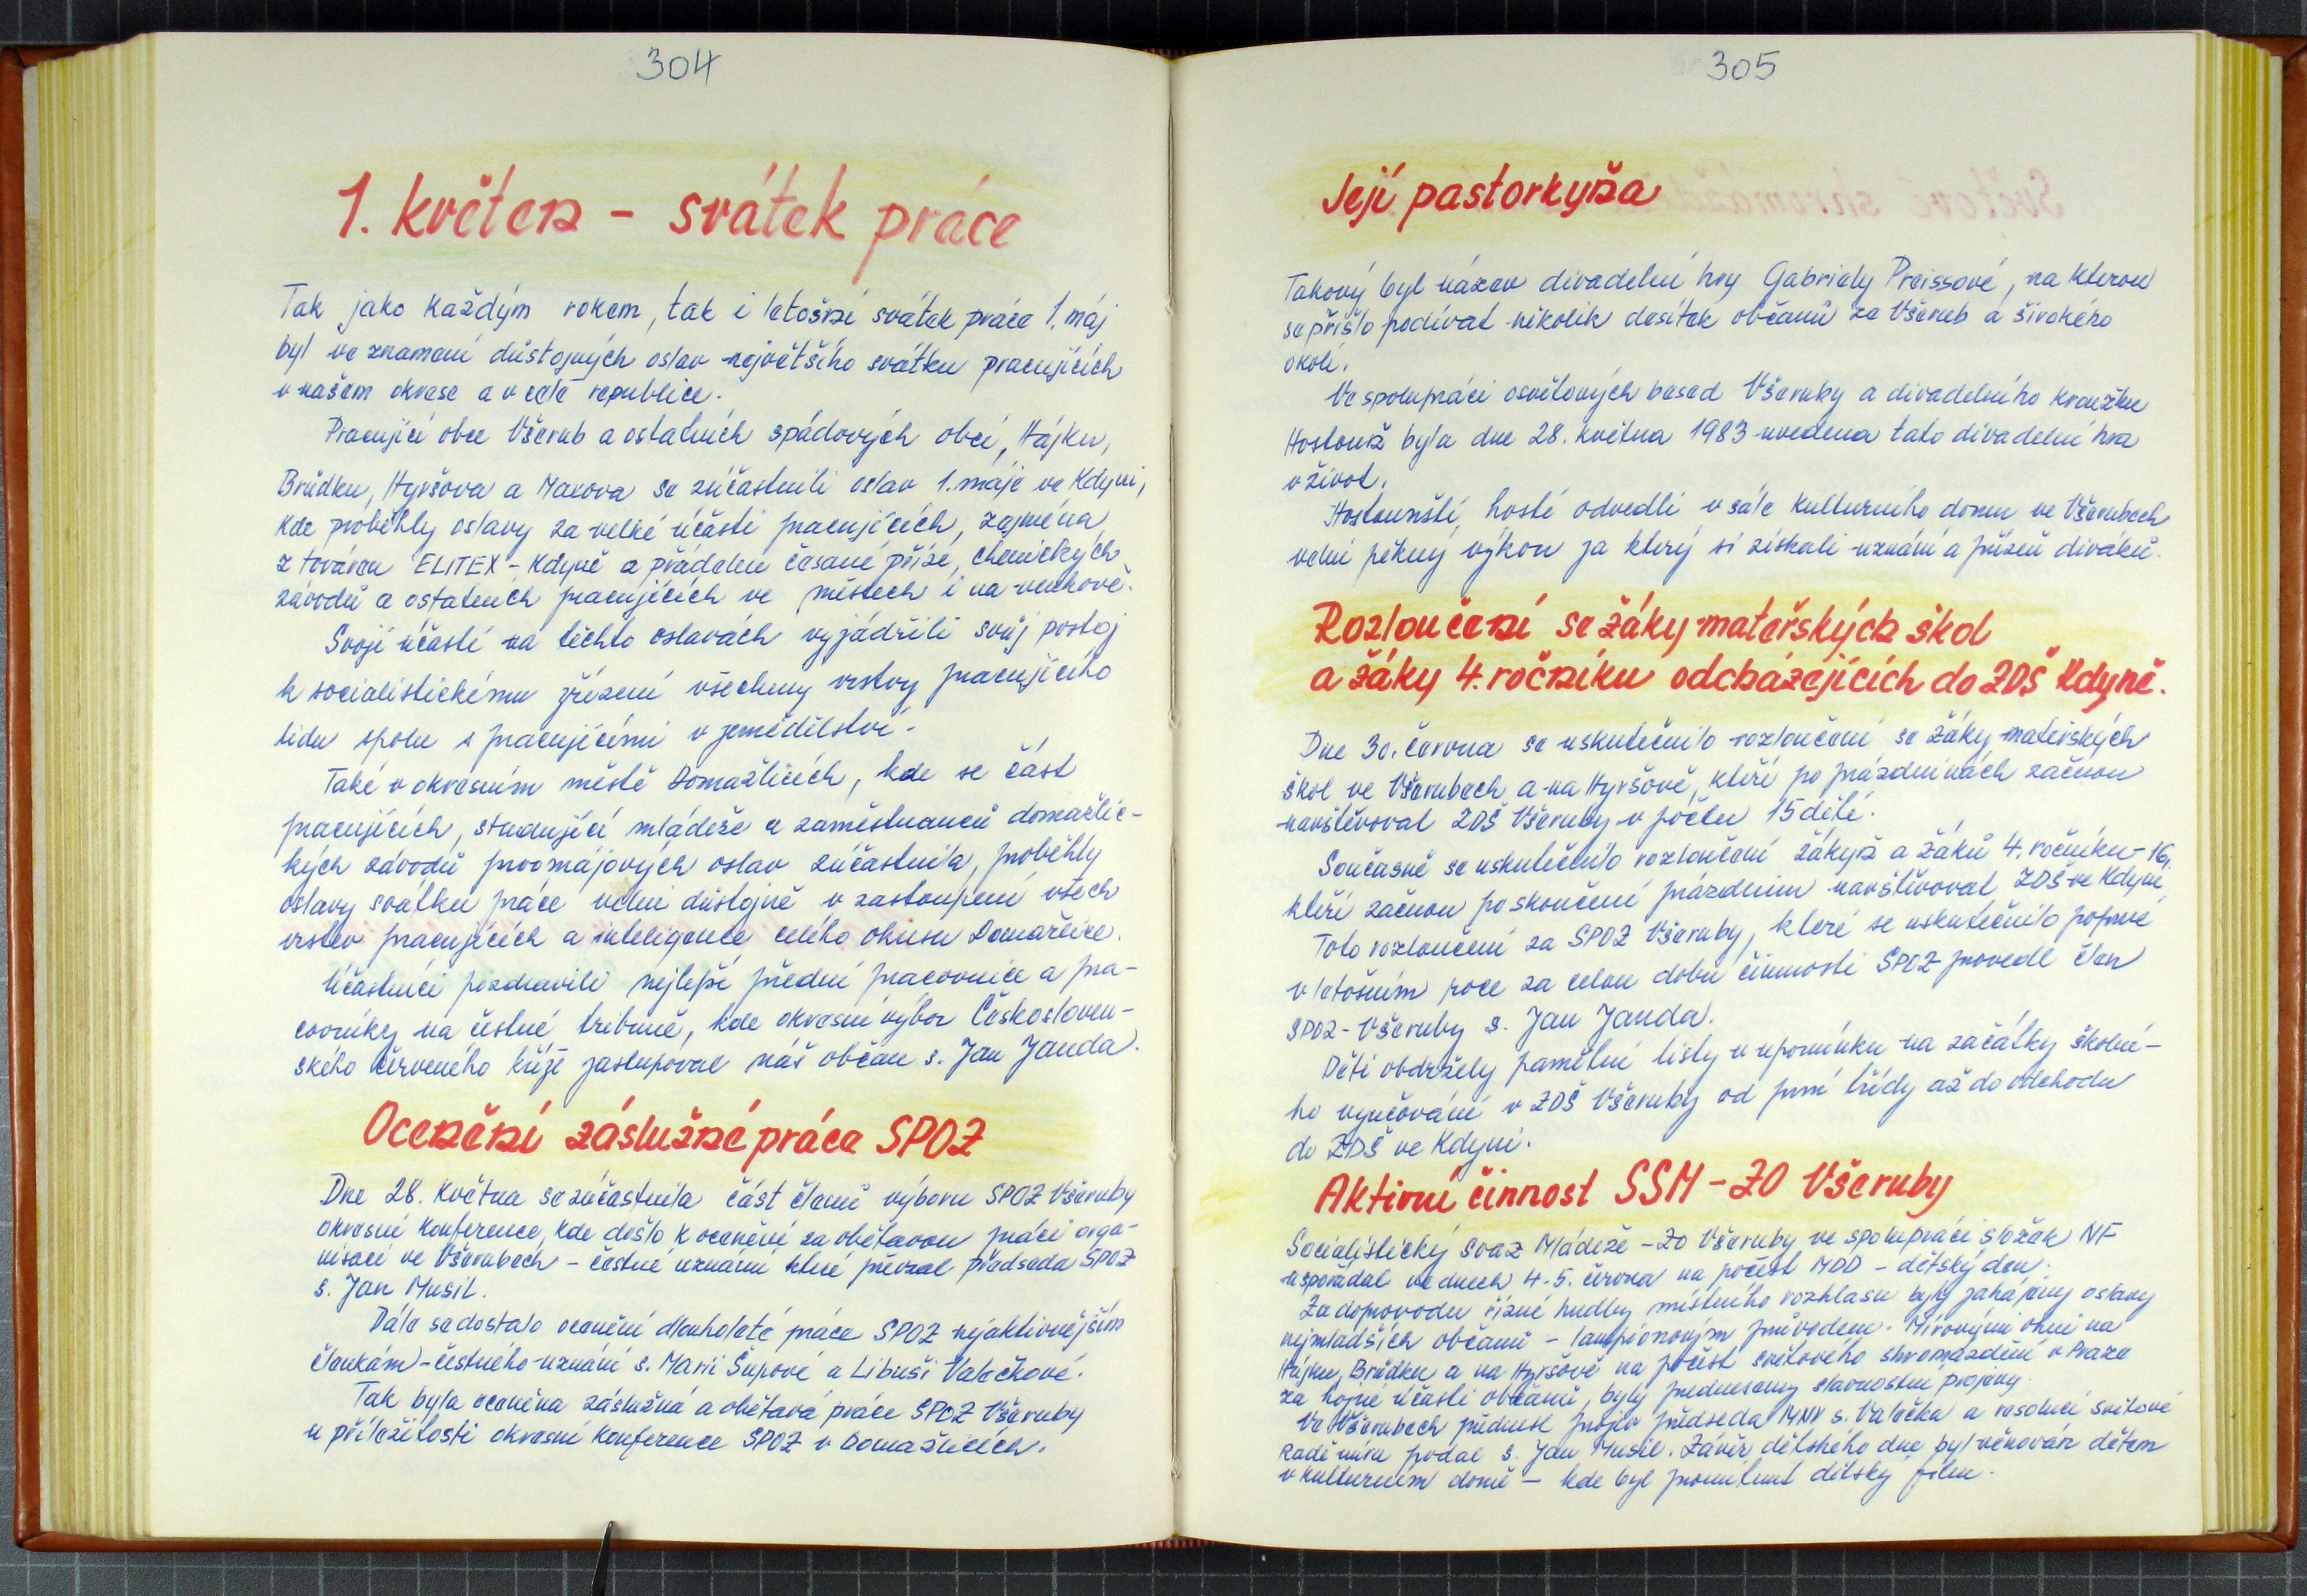 304
1. květen - svátek práce
Tak jako každým rokem, tak i letošní svátek práce 1. máj
byl ve znamení důstojných oslav největšího svátku pracujících
v našem okrese a v celé republice.
Pracující obce Všerub a ostatních spádových obcí, Hájku,
Brůdku, Hyršova a Maxova se zúčastnili oslav 1. máje ve Kdyni,
kde proběhly oslavy za velké účasti pracujících, zejména
z továren ELITEX - Kdyně a přádelen česané příze, chemických
závodů a ostatních pracujících ve městech i na venkově.
Svojí účastí na těchto oslavách vyjádřili svůj postoj
k socialistickému zřízení všechny vrstvy pracujícího
lidu spolu s pracujícími v zemědělství.
Také v okresním městě Domažlicích, kde se část
pracujících, studující mládeže a zaměstnanců domažlic-
kých závodů prvomájových oslav zúčastnila, proběhly
oslavy svátku práce velmi důstojně v zastoupení všech
vrstev pracujících a inteligence celého okresu Domažlice.
Účastníci pozdravili nejlepší přední pracovnice a pra-
covníky na čestné tribuně, kde okresní výbor Českosloven-
ského červeného kříže zastupoval náš občan s. Jan Janda.
Ocenění záslužné práce SPOZ
Dne 28. května se zúčastnila část členů výboru SPOZ Všeruby
okresní konference, kde došlo k ocenění za obětavou práci orga-
nisaci ve Všerubech - čestné uznání které převzal předseda SPOZ
s. Jan Musil.
Dále se dostalo ocenění dlouholeté práce SPOZ nejaktivnějším
členkám - čestného uznání s. Marii Šupové a Libuši Valečkové.
Tak byla oceněna záslužná a obětavá práce SPOZ Všeruby
u příležitosti okresní konference SPOZ v Domažlicích.
305
Její pastorkyňa
Takový byl název divadelní hry Gabriely Preissové, na kterou
se přišlo podívat několik desítek občanů ze Všerub a širokého
okolí.
Ve spolupráci osvětových besed Všeruby a divadelního kroužku
Hostouň byla dne 28. května 1983 uvedena tato divadelní hra
v život.
Hostounští hosté odvedli v sále kulturního domu ve Všerubech
velmi pěkný výkon za který si získali uznání a přízeň diváků.
Rozloučení se žáky mateřských škol
a žáky 4. ročníku odcházejících do ZDŠ Kdyně.
Dne 30. června se uskutečnilo rozloučení se žáky mateřských
škol ve Všerubech a na Hyršově, kteří po prázdninách začnou
navštěvovat ZDŠ Všeruby v počtu 15 dětí.
Současně se uskutečnilo rozloučení žákyň a žáků 4. ročníku - 16,
kteří začnou po skončení prázdnin navštěvovat ZDŠ ve Kdyni
Toto rozloučení za SPOZ Všeruby, které se uskutečnilo poprvé
v letošním roce za celou dobu činnosti SPOZ provedl člen
SPOZ - Všeruby s. Jan Janda.
Děti obdržely pamětní listy v upomínku na začátky školní-
ho vyučování v ZDŠ Všeruby od první třídy až do odchodu
do ZDŠ ve Kdyni.
Aktivní činnost SSM - ZO Všeruby
Socialistický svaz Mládeže - ZO Všeruby ve spolupráci složek NF
uspořádal ve dnech 4.-5. června na počest MDD - dětský den.
Za doprovodu řízné hudby místního rozhlasu byly zahájeny oslavy
nejmladších občanů - lampionovým průvodem. Mírovými ohni na
Hájku, Brůdku a na Hyršově na počest světového shromáždění v Praze
za hojné účasti občanů, byly předneseny slavnostní projevy.
Ve Všerubech přednesl projev předseda MNV s. Valečka a resoluci Světové
Radě míru podal s. Jan Musil. Závěr dětského dne byl věnován dětem
v kulturním domě - kde byl promítnut dětský film.